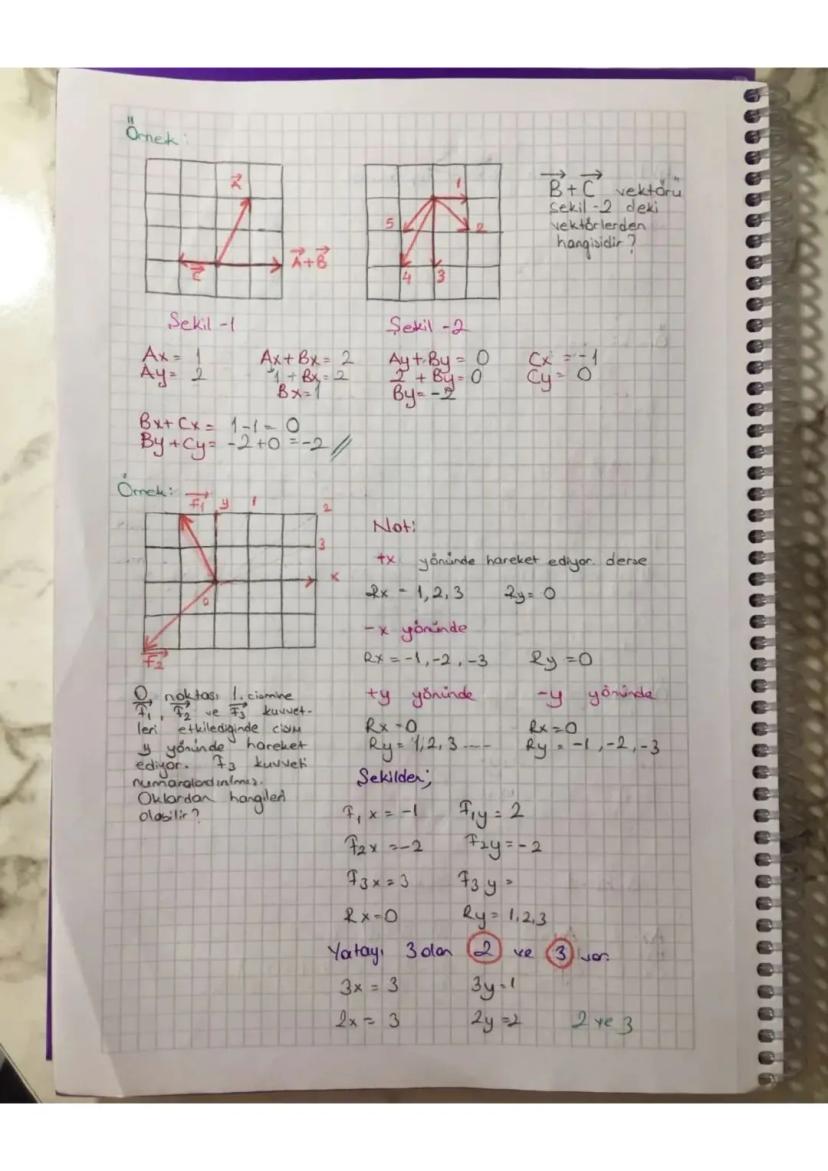 Örnek:
A
C
A+B
Şekil -1
1
2
3
4
5
Şekil -2
B+C vektörü
Şekil -2 deki
vektörlerden
hangisidir?
Ax = 1
Ay = 2
Ax+Bx = 2
1 + Bx = 2
Bx=1
Ay+By = 0
2 + By = 0
By = -2
Cx = -1
Cy = 0
Bx+Cx = 1-1 = 0
By+Cy = -2+0 = -2 //
Örnek:
F1 y 1 2
3
x
0
F2
0 noktası 1. cismine
F1, F2 ve F3 kuvvet-
leri etkilediğinde cisim
y yönünde hareket
ediyor. F3 kuvveti
Oklardan hangileri
olabilir?
Not:
+x yönünde hareket ediyor derse
Rx = 1,2,3 Ry = 0
-x yönünde
Rx = -1,-2,-3 Ry = 0
+y yönünde -y yönünde
Rx = 0 Rx = 0
Ry = 1,2,3 ---- Ry = -1,-2,-3
Şekilden;
F1x = -1 F1y = 2
F2x = -2 F2y = -2
F3x = 3 F3y =
Rx = 0 Ry = 1,2,3
Yatayı 3 olan 2 ve 3 var.
3x = 3 3y = 1
2x = 3 2y = 2 2 ve 3